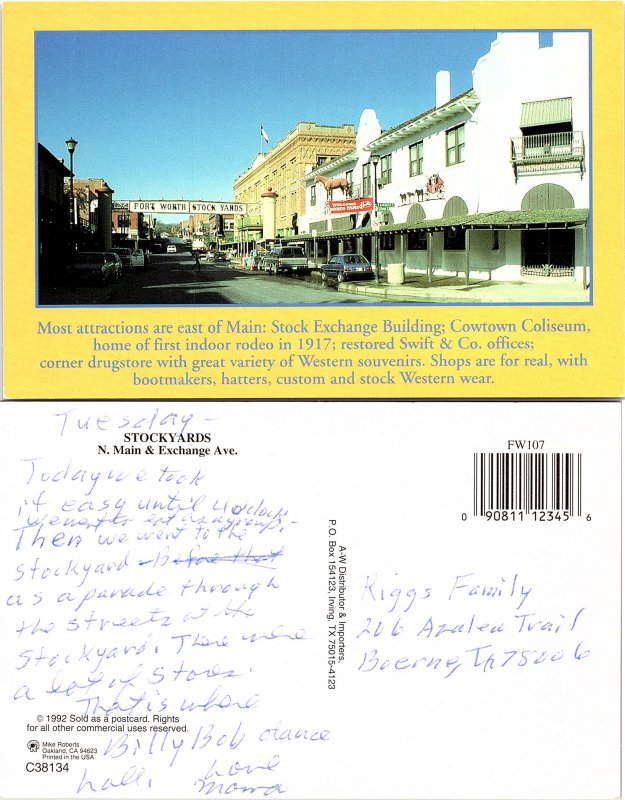 FORT WORTH STOCK YARDS
WELCOME
RODEO
Most attractions are east of Main: Stock Exchange Building; Cowtown Coliseum,
home of first indoor rodeo in 1917; restored Swift & Co. offices;
corner drugstore with great variety of Western souvenirs. Shops are for real, with
bootmakers, hatters, custom and stock Western wear.
Tuesday -
STOCKYARDS
N. Main & Exchange Ave.
Today we took
it easy until 4 o'clock
we went to eat as a group -
Then we went to the
stockyard - Before that
as a parade through
the streets of the
Stockyard. There were
a lot of Stores.
That is where
Billy Bob dance
hall. Love
Moma
© 1992 Sold as a postcard. Rights
for all other commercial uses reserved.
Mike Roberts
Oakland, CA 94623
Printed in the USA
C38134
A-W Distributor & Importers,
P.O. Box 154123, Irving, TX 75015-4123
FW107
0 90811 12345 6
Riggs Family
206 Azalea Trail
Boerne, Tx 78006